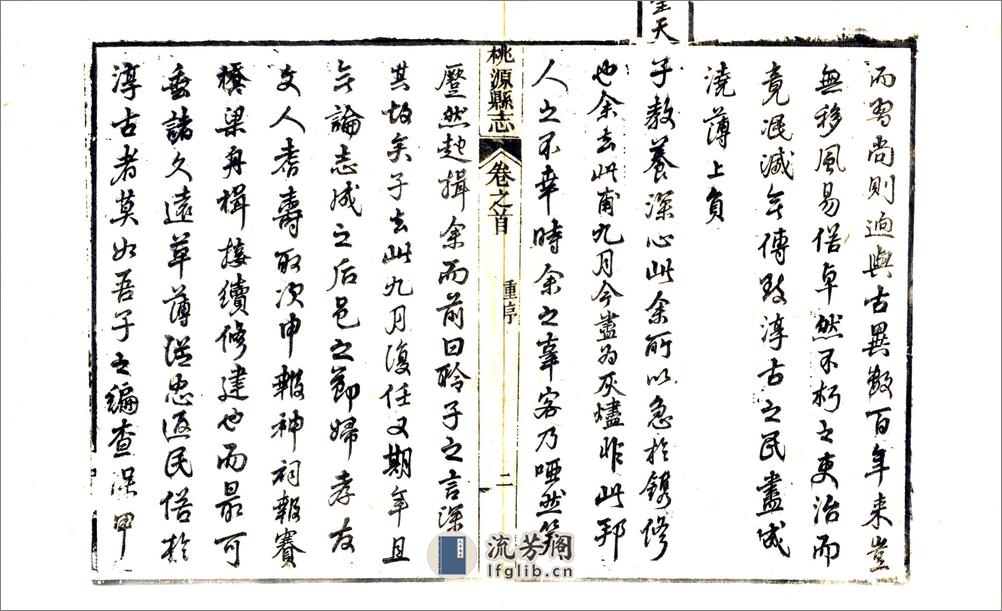 而習尚則逈與古異數百年來豈
無移風易俗卓然不朽之吏治而
竟泯滅无傳致淳古之民盡成
澆薄上負
聖天
子教養深心此余所以急於鐫修
也余去此甫九月今盡為灰燼非此邦
人之不幸時余之辜客乃啞然笑
桃源縣志
卷之首
重序
二
蹙然起揖余而前曰聆子之言深
其故矣子去此九月復任又期年且
无論志成之后邑之節婦孝友
文人耆壽取次申報神祠報賽
橋梁舟楫接續修建也而最可
垂諸久遠革薄從忠返民俗於
淳古者莫如吾子之編查保甲
流芳阁
lfglib.cn